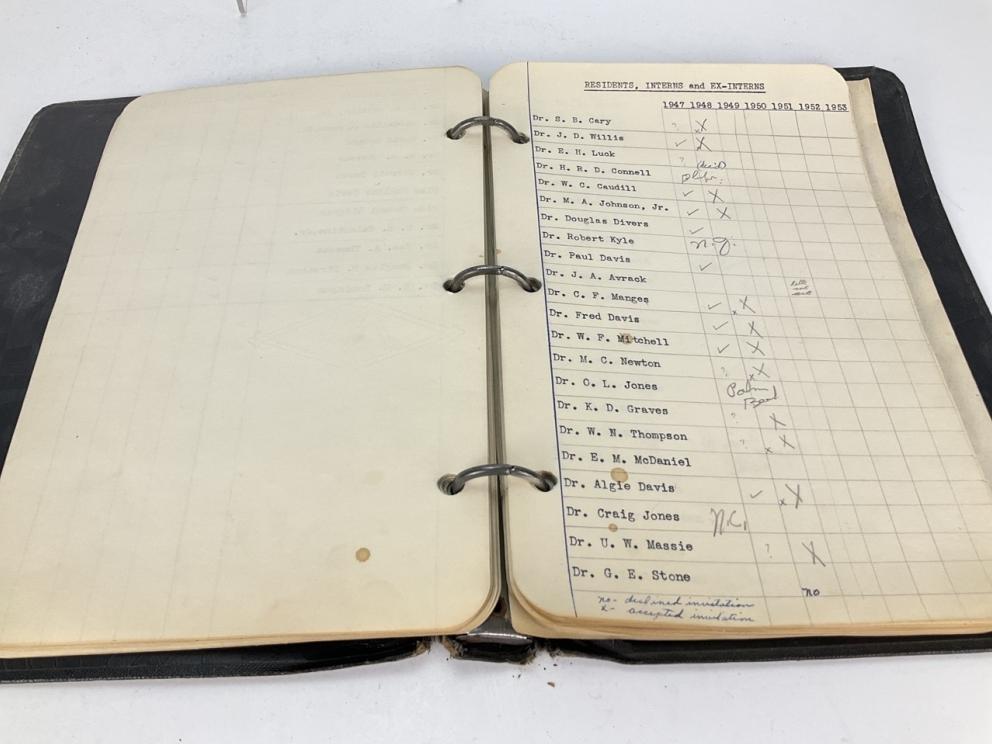 RESIDENTS, INTERNS and EX-INTERNS
1947 1948 1949 1950 1951 1952 1953
Dr. S. B. Cary ? x X
Dr. J. D. Willis ✓ X
Dr. E. H. Luck ?
Dr. H. R. D. Connell
Dr. W. C. Caudill ✓ X
Dr. M. A. Johnson, Jr. ✓ X
Dr. Douglas Divers ✓
Dr. Robert Kyle n.g.
Dr. Paul Davis ✓
Dr. J. A. Avrack
Dr. C. F. Manges ✓ x X
Dr. Fred Davis ✓ X
Dr. W. F. Mitchell ✓ X
Dr. M. C. Newton ? x X
Dr. O. L. Jones Palm
Dr. K. D. Graves ? X
Dr. W. N. Thompson ? x X
Dr. E. M. McDaniel
Dr. Algie Davis ✓ x X
Dr. Craig Jones N.C.
Dr. U. W. Massie ? X
Dr. G. E. Stone no
no - declined invitation
x - accepted invitation